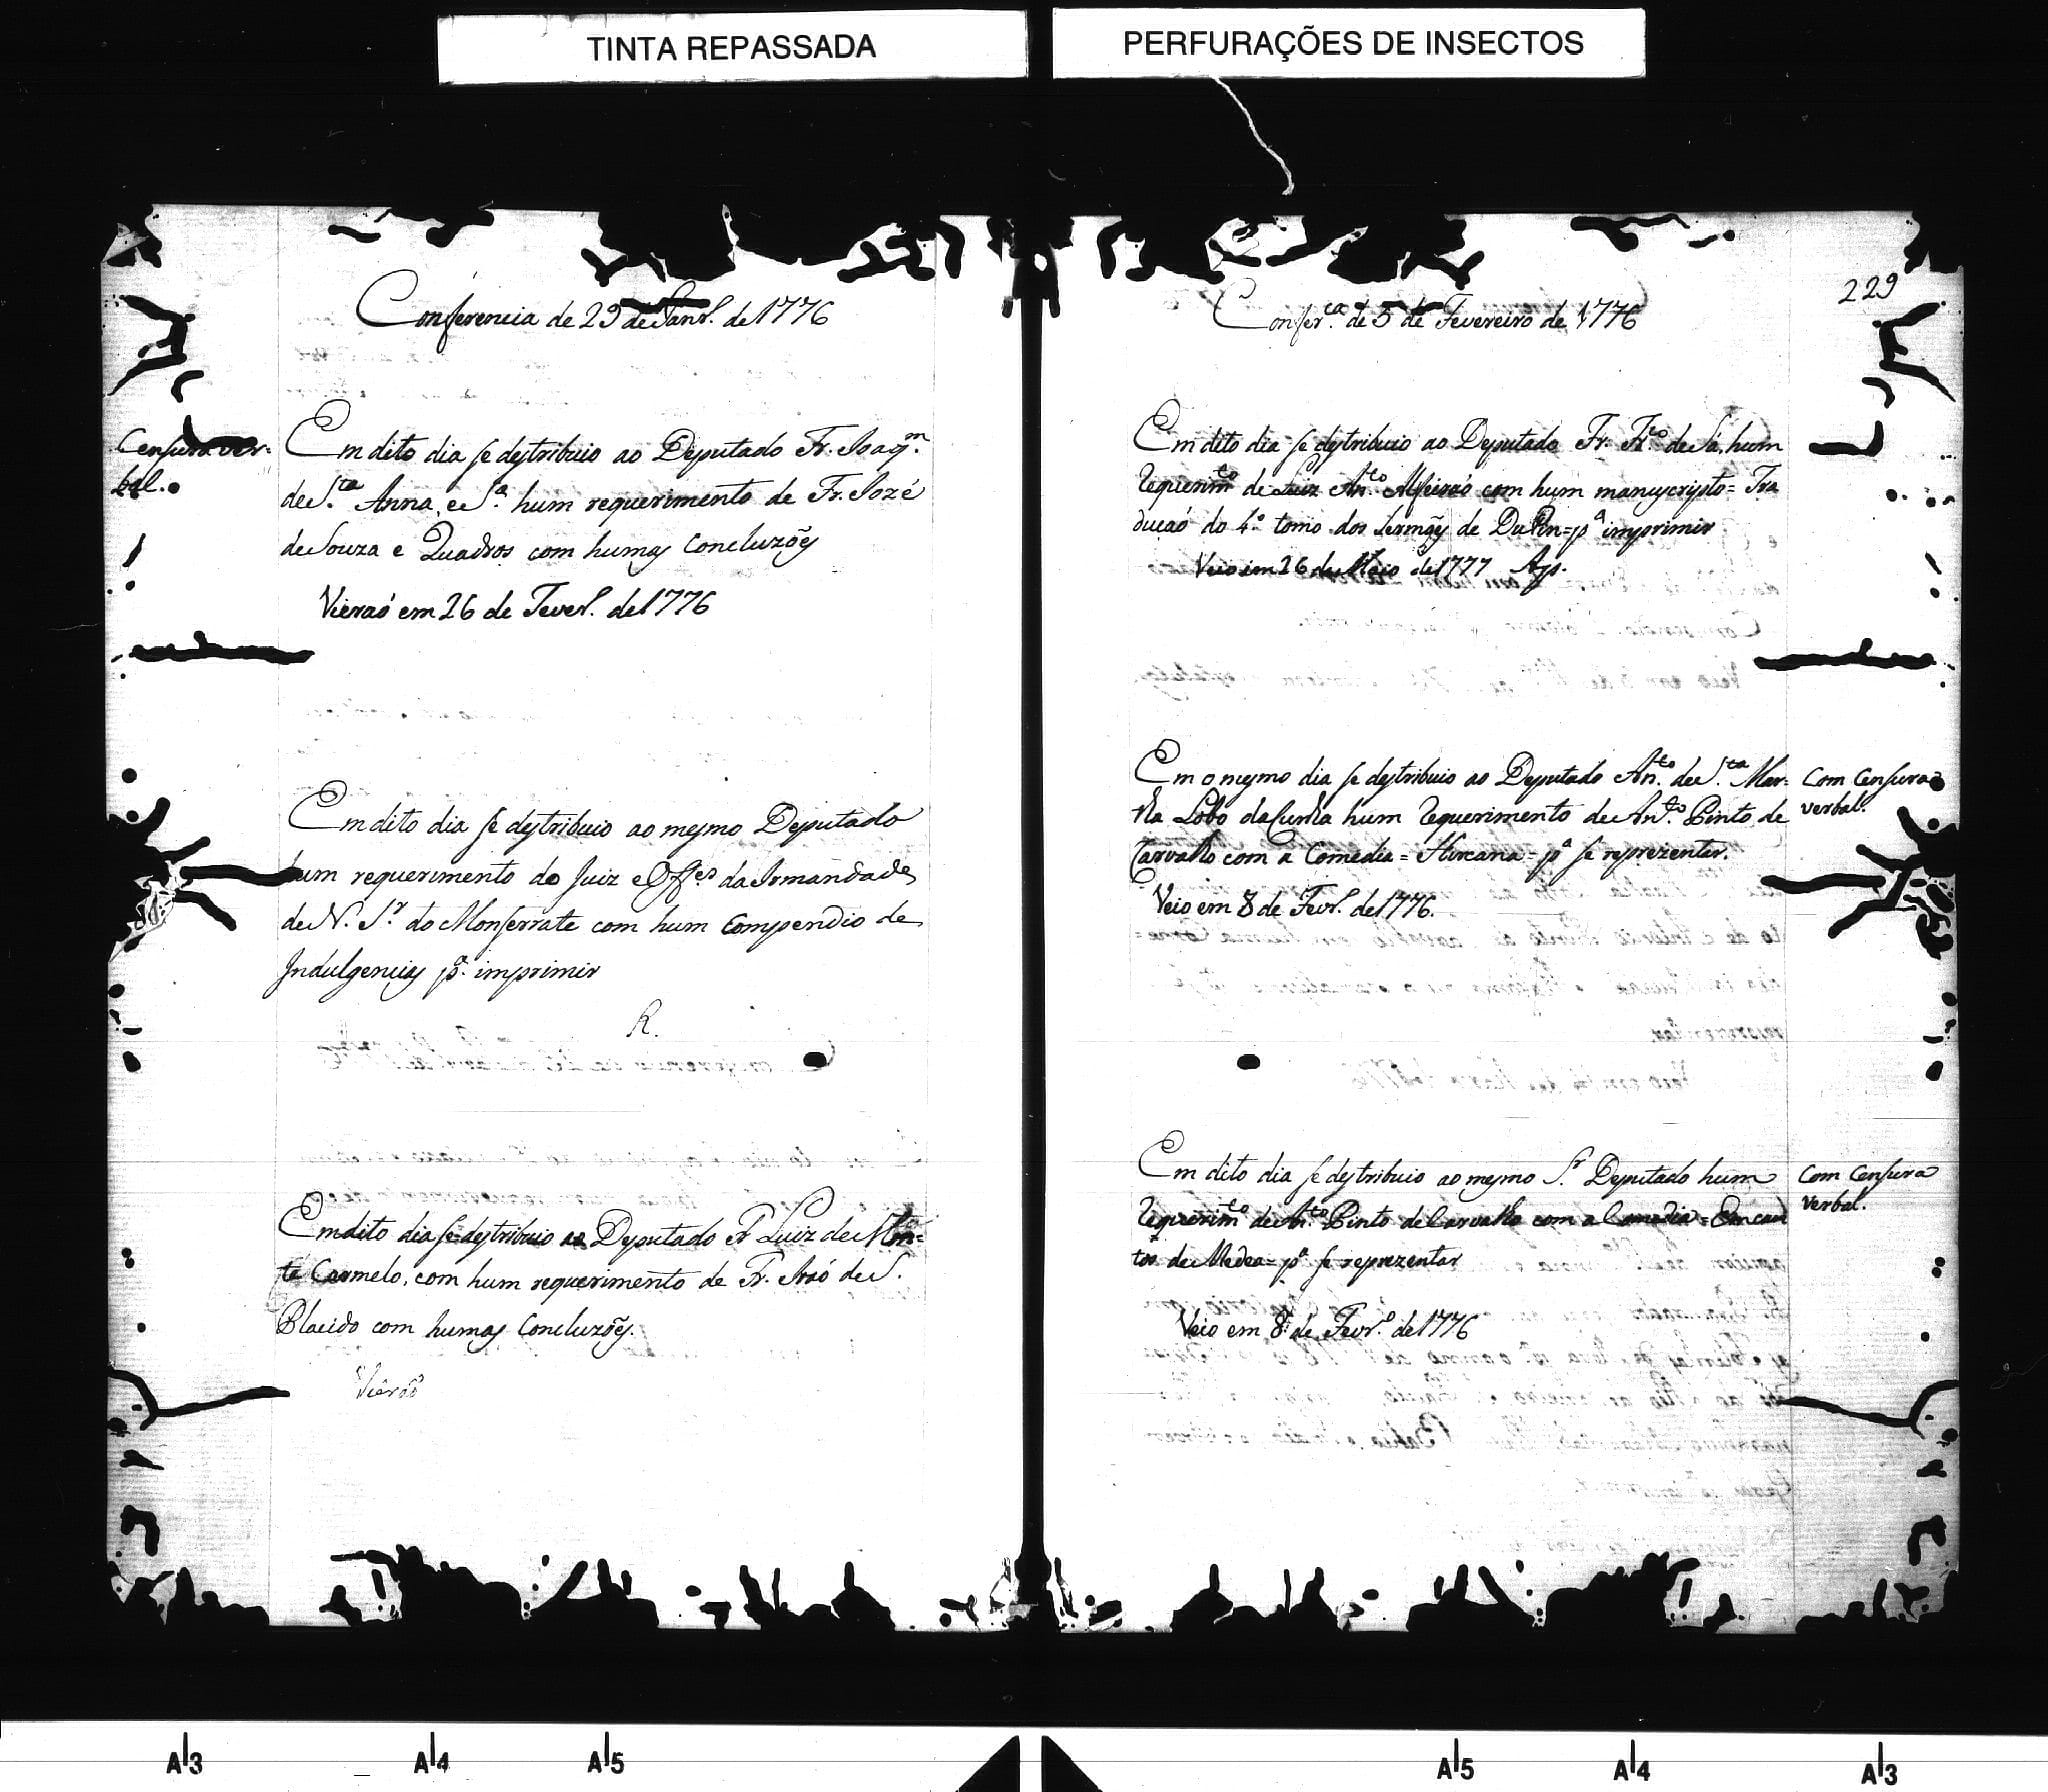 TINTA REPASSADA
PERFURAÇÕES DE INSECTOS
Conferencia de 29 de Janr.º de 1776
Censura ver-
bal.
Em dito dia se destribuio ao Deputado Fr. Joaq.m
de S.ta Anna, e S.a hum requerimento de Fr. Jozé
de Souza e Quadros com humas Concluzoẽs
Vieraó em 26 de Fever.º de 1776
Em dito dia se destribuio ao mesmo Deputado
hum requerimento do Juiz e Off.es da Irmandade
de N. Sr.ª do Monserrate com hum Compendio de
Indulgencias p.ª imprimir
R.
Em dito dia se destribuio ao Deputado Fr Luiz de Mon-
te Carmelo, com hum requerimento de Fr. Joaó de S.
Placido com humas Concluzoẽs.
Vieraõ
229
Confer.ca de 5 de Fevereiro de 1776
Em dito dia se destribuio ao Deputado Fr. Fr.co de Sá, hum
Requerim.to de Luiz An.to Alfeiraó com hum manuscripto = Tra
ducaó do 4.º tomo dos Sermoẽs de Du Pin = p.ª imprimir
Veio em 26 de Maio de 1777
Em o mesmo dia se destribuio ao Deputado An.to de S.ta Mar-
tha Lobo da Cunha hum Requerimento de An.to Pinto de
Carvalho com a Comedia = Hircana = p.ª se reprezentar.
Veio em 8 de Fevr.º de 1776.
Com Censura
verbal.
Em dito dia se destribuio ao mesmo S.r Deputado hum
Requerim.to de An.to Pinto de Carvalho com a Comedia = Encan
tos de Medea = p.ª se reprezentar
Veio em 8 de Fevr.º de 1776
Com Censura
Verbal.
A3 A4 A5 A5 A4 A3